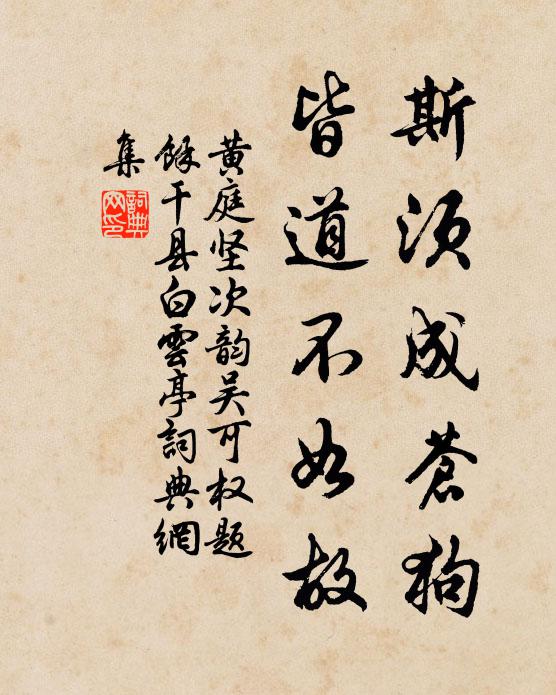 斯须成苍狗
皆道不如故
黄庭坚次韵吴可权题
餘干县白雲亭詞典網
集
詞典
网印